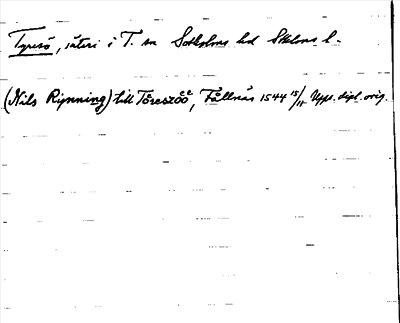 Tyresö, säteri i T. sn Sotholms hd Sthlms l.
(Nils Rynning) till Töreszöö, Fållnäs 1544 15/11 Uppl. dipl. orig.